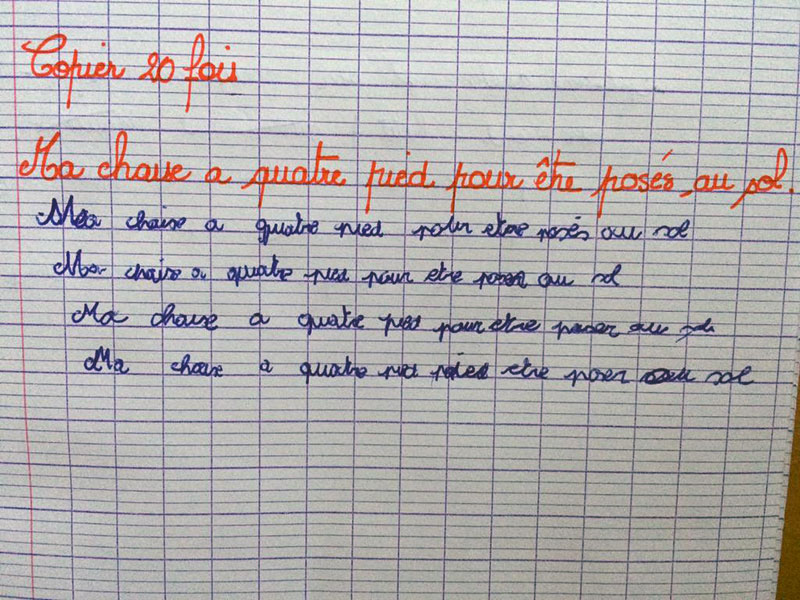 Copier 20 fois
Ma chaise a quatre pied pour être posés au sol.
Mea chaise a quatre pied pour etre posés au sol
Ma chaise a quatre pied pour etre poser au sol
Ma chaise a quatre pied pour etre poser au sol
Ma chaise a quatre pied etre poser au sol